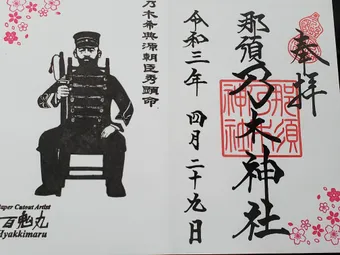 奉拝
那須乃木神社
令和三年 四月二十九日
乃木希典源朝臣勇顕命
Paper Cutout Artist
百鬼丸
Hyakkimaru